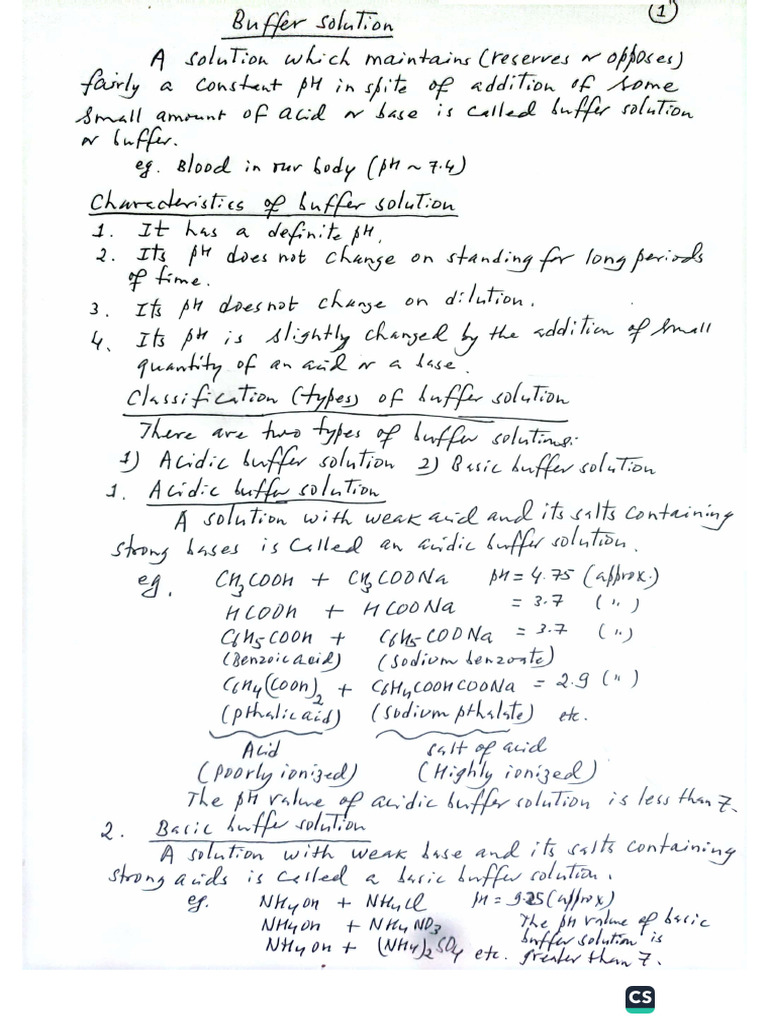 (1)
Buffer solution
A solution which maintains (reserves or opposes)
fairly a constant pH in spite of addition of some
small amount of acid or base is called buffer solution
or buffer.
eg. Blood in our body (pH ~ 7.4)
Characteristics of buffer solution
1. It has a definite pH.
2. Its pH does not change on standing for long periods
of time.
3. Its pH does not change on dilution.
4. Its pH is slightly changed by the addition of small
quantity of an acid or a base.
Classification (types) of buffer solution
There are two types of buffer solutions:-
1) Acidic buffer solution 2) Basic buffer solution
1. Acidic buffer solution
A solution with weak acid and its salts containing
strong bases is called an acidic buffer solution.
eg. CH3COOH + CH3COONa pH = 4.75 (approx.)
HCOOH + HCOONa = 3.7 (")
C6H5COOH + C6H5COONa = 3.7 (")
(Benzoic acid) (sodium benzoate)
C6H4(COOH)2 + C6H4COOHCOONa = 2.9 (")
(pthalic acid) (sodium pthalate) etc.
Acid salt of acid
(Poorly ionized) (Highly ionized)
The pH value of acidic buffer solution is less than 7.
2. Basic buffer solution
A solution with weak base and its salts containing
strong acids is called a basic buffer solution.
eg. NH4OH + NH4Cl pH = 9.25 (approx)
NH4OH + NH4NO3 The pH value of basic
NH4OH + (NH4)2SO4 etc. buffer solution is
greater than 7.
CS